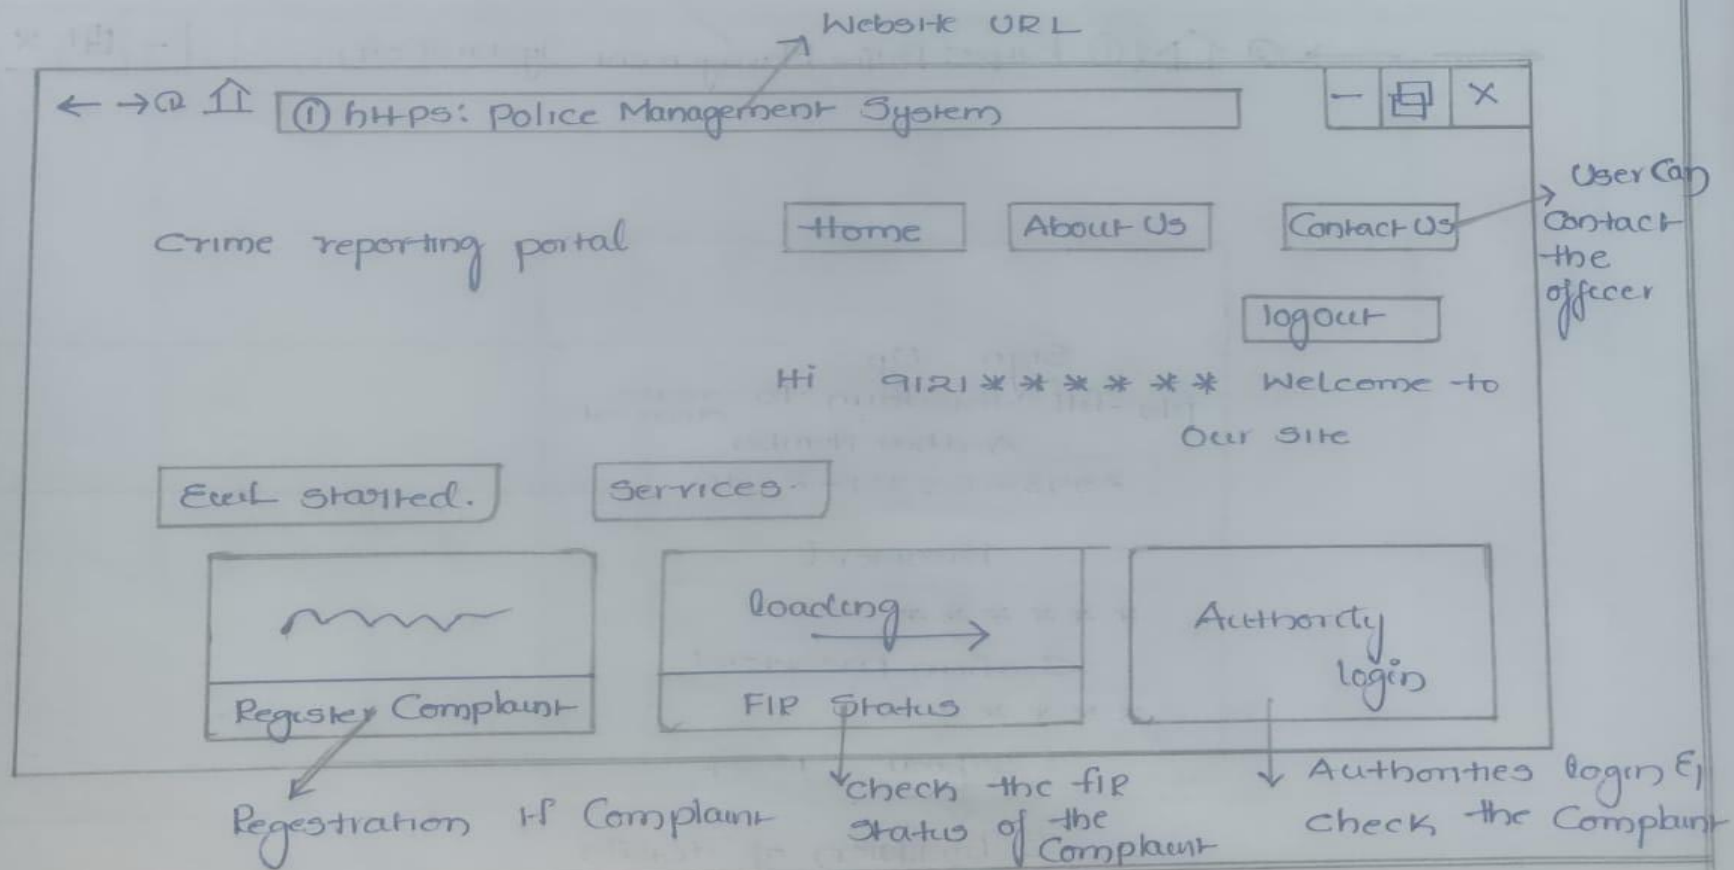 Website URL
① https: Police Management System
Crime reporting portal
Home
About Us
Contact Us
User Can
Contact
the
officer
logout
Hi 9121 * * * * * * Welcome to
our site
started.
Services.
loading
Authority
login
Register Complaint
FIR Status
Regestration if Complaint
check the FIR
status of the
Complaint
Authorities login &
check the Complaint